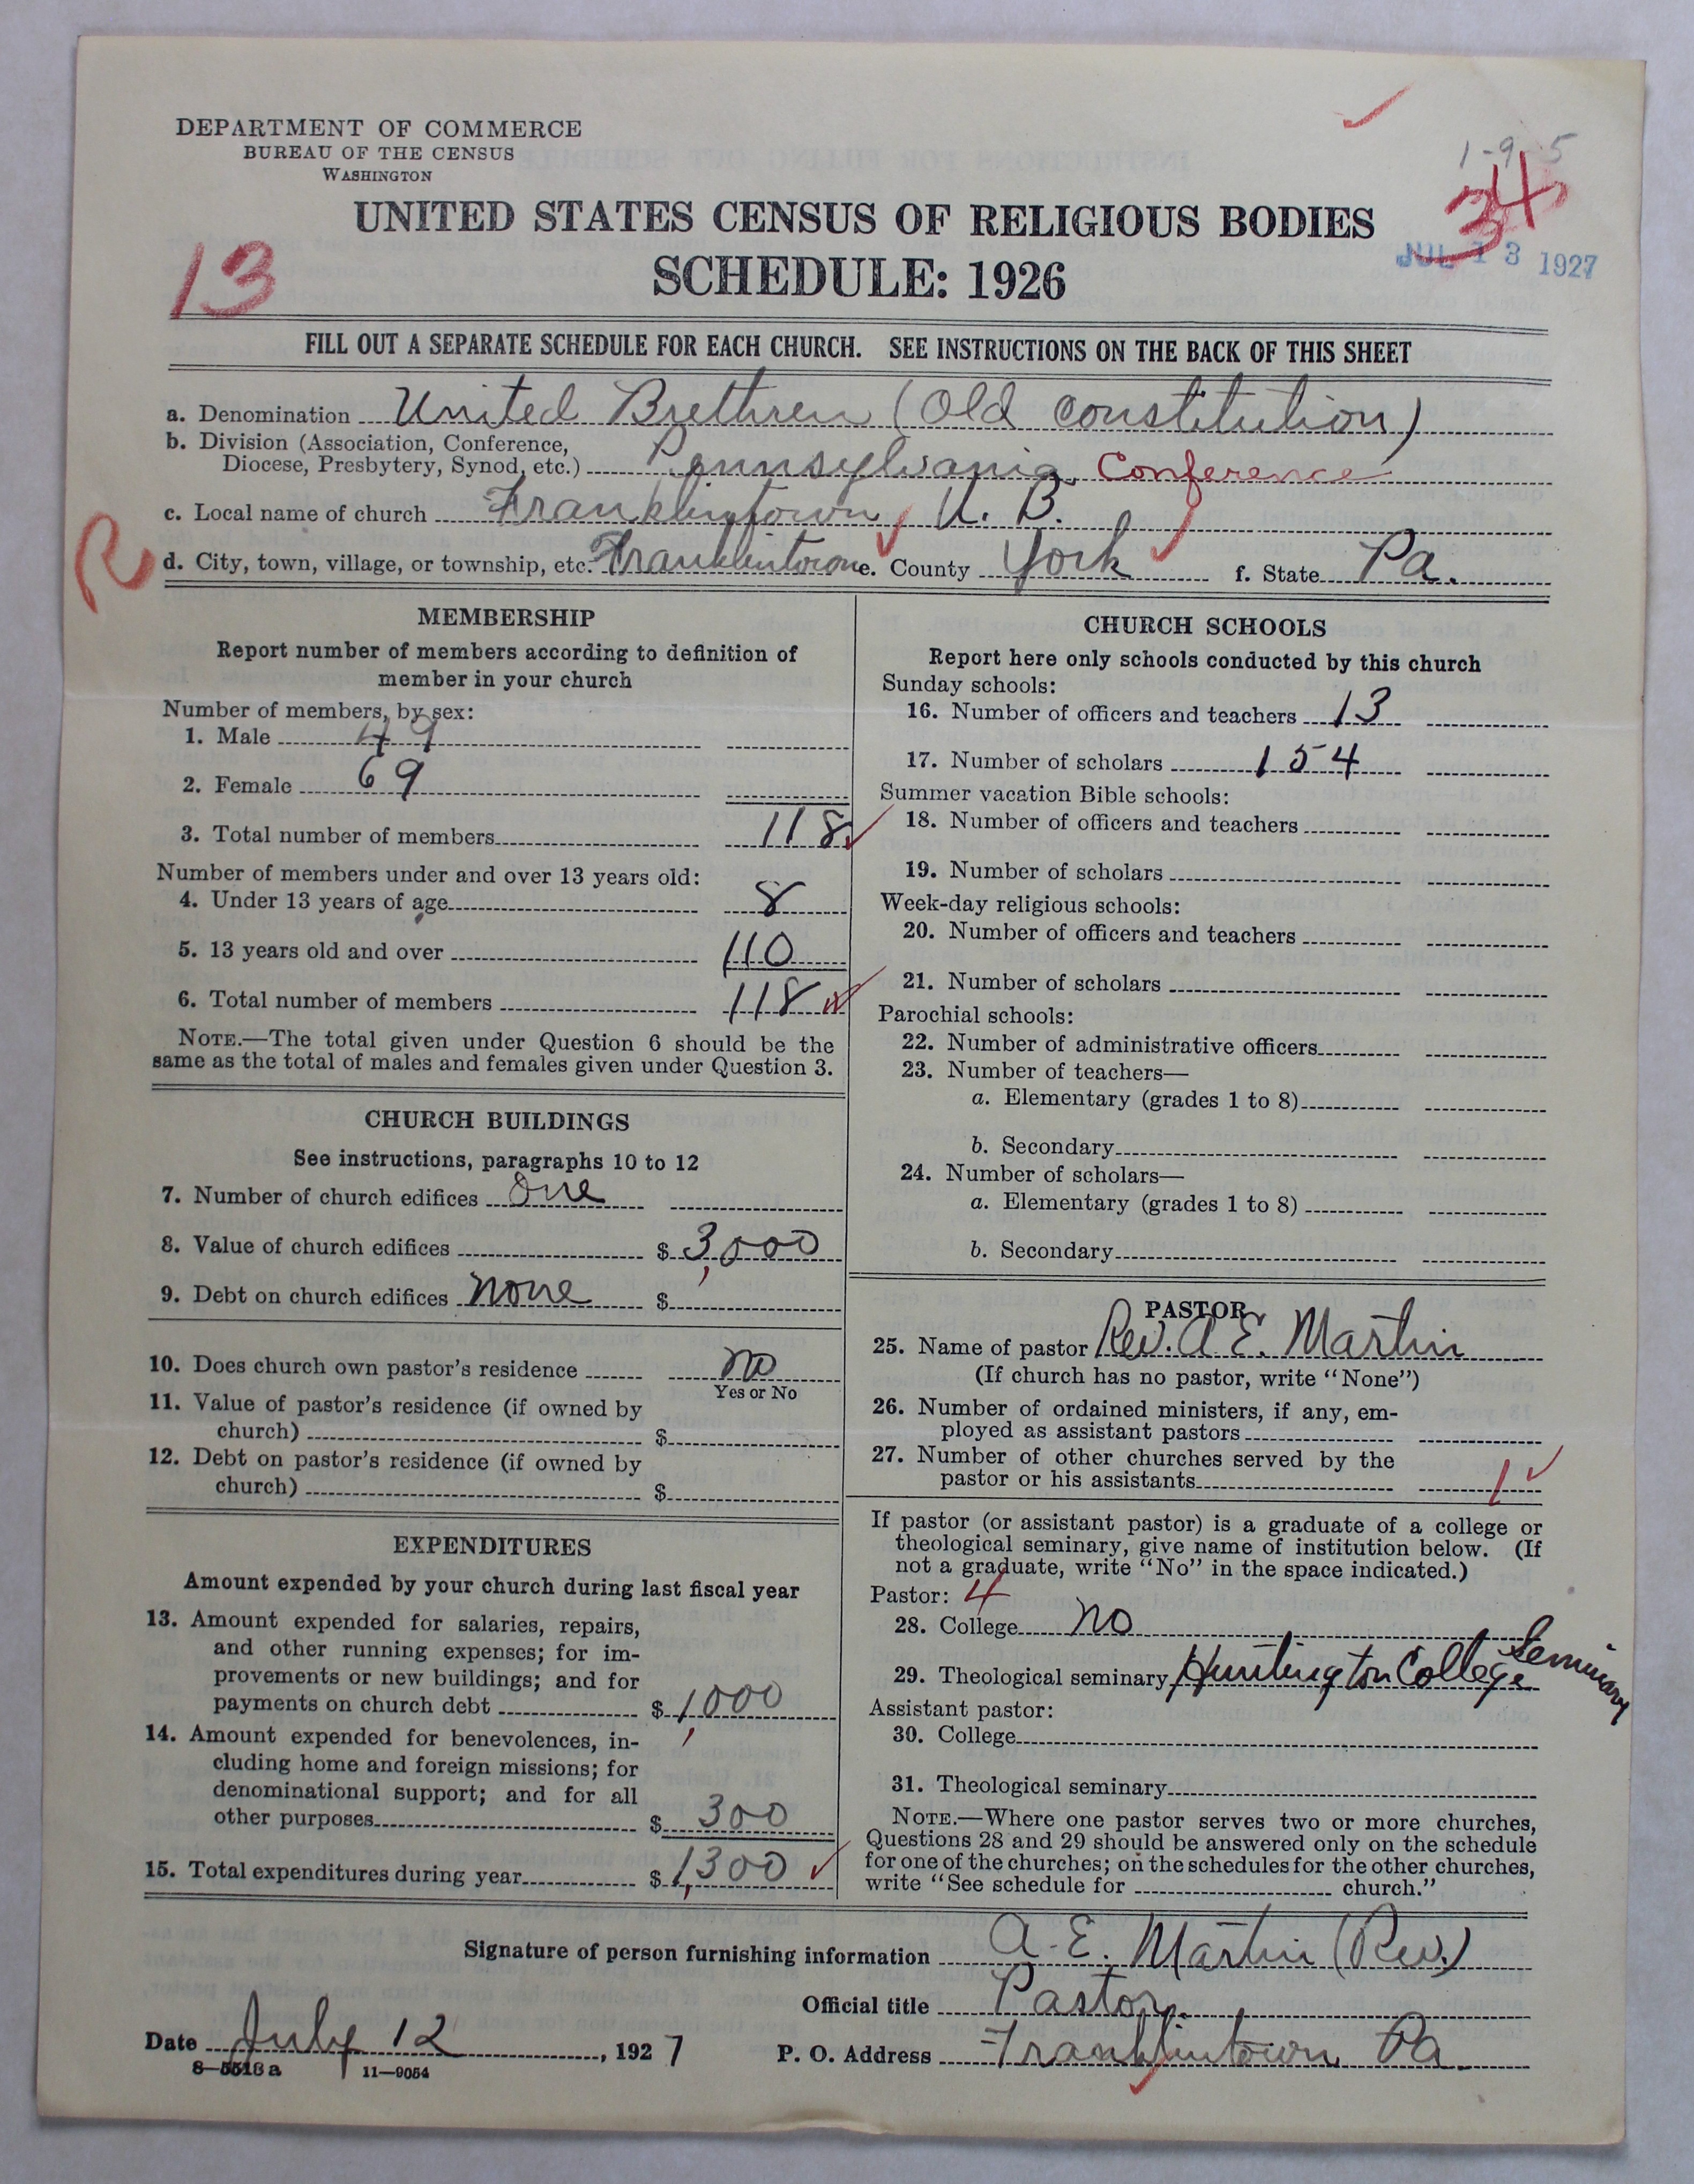 DEPARTMENT OF COMMERCE
BUREAU OF THE CENSUS
WASHINGTON
1-9-5
34
UNITED STATES CENSUS OF RELIGIOUS BODIES
SCHEDULE: 1926
JUL 13 1927
13
FILL OUT A SEPARATE SCHEDULE FOR EACH CHURCH. SEE INSTRUCTIONS ON THE BACK OF THIS SHEET
a. Denomination United Brethren (Old Constitution)
b. Division (Association, Conference,
Diocese, Presbytery, Synod, etc.) Pennsylvania Conference
c. Local name of church Franklintown U. B.
R
d. City, town, village, or township, etc. Franklintown e. County York f. State Pa.
MEMBERSHIP
Report number of members according to definition of
member in your church
Number of members, by sex:
1. Male 49
2. Female 69
3. Total number of members 118
Number of members under and over 13 years old:
4. Under 13 years of age 8
5. 13 years old and over 110
6. Total number of members 118
NOTE.—The total given under Question 6 should be the
same as the total of males and females given under Question 3.
CHURCH BUILDINGS
See instructions, paragraphs 10 to 12
7. Number of church edifices One
8. Value of church edifices $ 3,000
9. Debt on church edifices none $
10. Does church own pastor's residence no
Yes or No
11. Value of pastor's residence (if owned by
church) $
12. Debt on pastor's residence (if owned by
church) $
EXPENDITURES
Amount expended by your church during last fiscal year
13. Amount expended for salaries, repairs,
and other running expenses; for im-
provements or new buildings; and for
payments on church debt $ 1,000
14. Amount expended for benevolences, in-
cluding home and foreign missions; for
denominational support; and for all
other purposes $ 300
15. Total expenditures during year $ 1,300
CHURCH SCHOOLS
Report here only schools conducted by this church
Sunday schools:
16. Number of officers and teachers 13
17. Number of scholars 154
Summer vacation Bible schools:
18. Number of officers and teachers
19. Number of scholars
Week-day religious schools:
20. Number of officers and teachers
21. Number of scholars
Parochial schools:
22. Number of administrative officers
23. Number of teachers—
a. Elementary (grades 1 to 8)
b. Secondary
24. Number of scholars—
a. Elementary (grades 1 to 8)
b. Secondary
PASTOR
25. Name of pastor Rev. A E. Martin
(If church has no pastor, write "None")
26. Number of ordained ministers, if any, em-
ployed as assistant pastors
27. Number of other churches served by the
pastor or his assistants 1
If pastor (or assistant pastor) is a graduate of a college or
theological seminary, give name of institution below. (If
not a graduate, write "No" in the space indicated.)
Pastor: 4
28. College no
29. Theological seminary Huntington College Seminary
Assistant pastor:
30. College
31. Theological seminary
NOTE.—Where one pastor serves two or more churches,
Questions 28 and 29 should be answered only on the schedule
for one of the churches; on the schedules for the other churches,
write "See schedule for church."
Signature of person furnishing information A. E. Martin (Rev.)
Official title Pastor.
Date July 12, 1927
P. O. Address Franklintown Pa.
8—5513a 11—9054